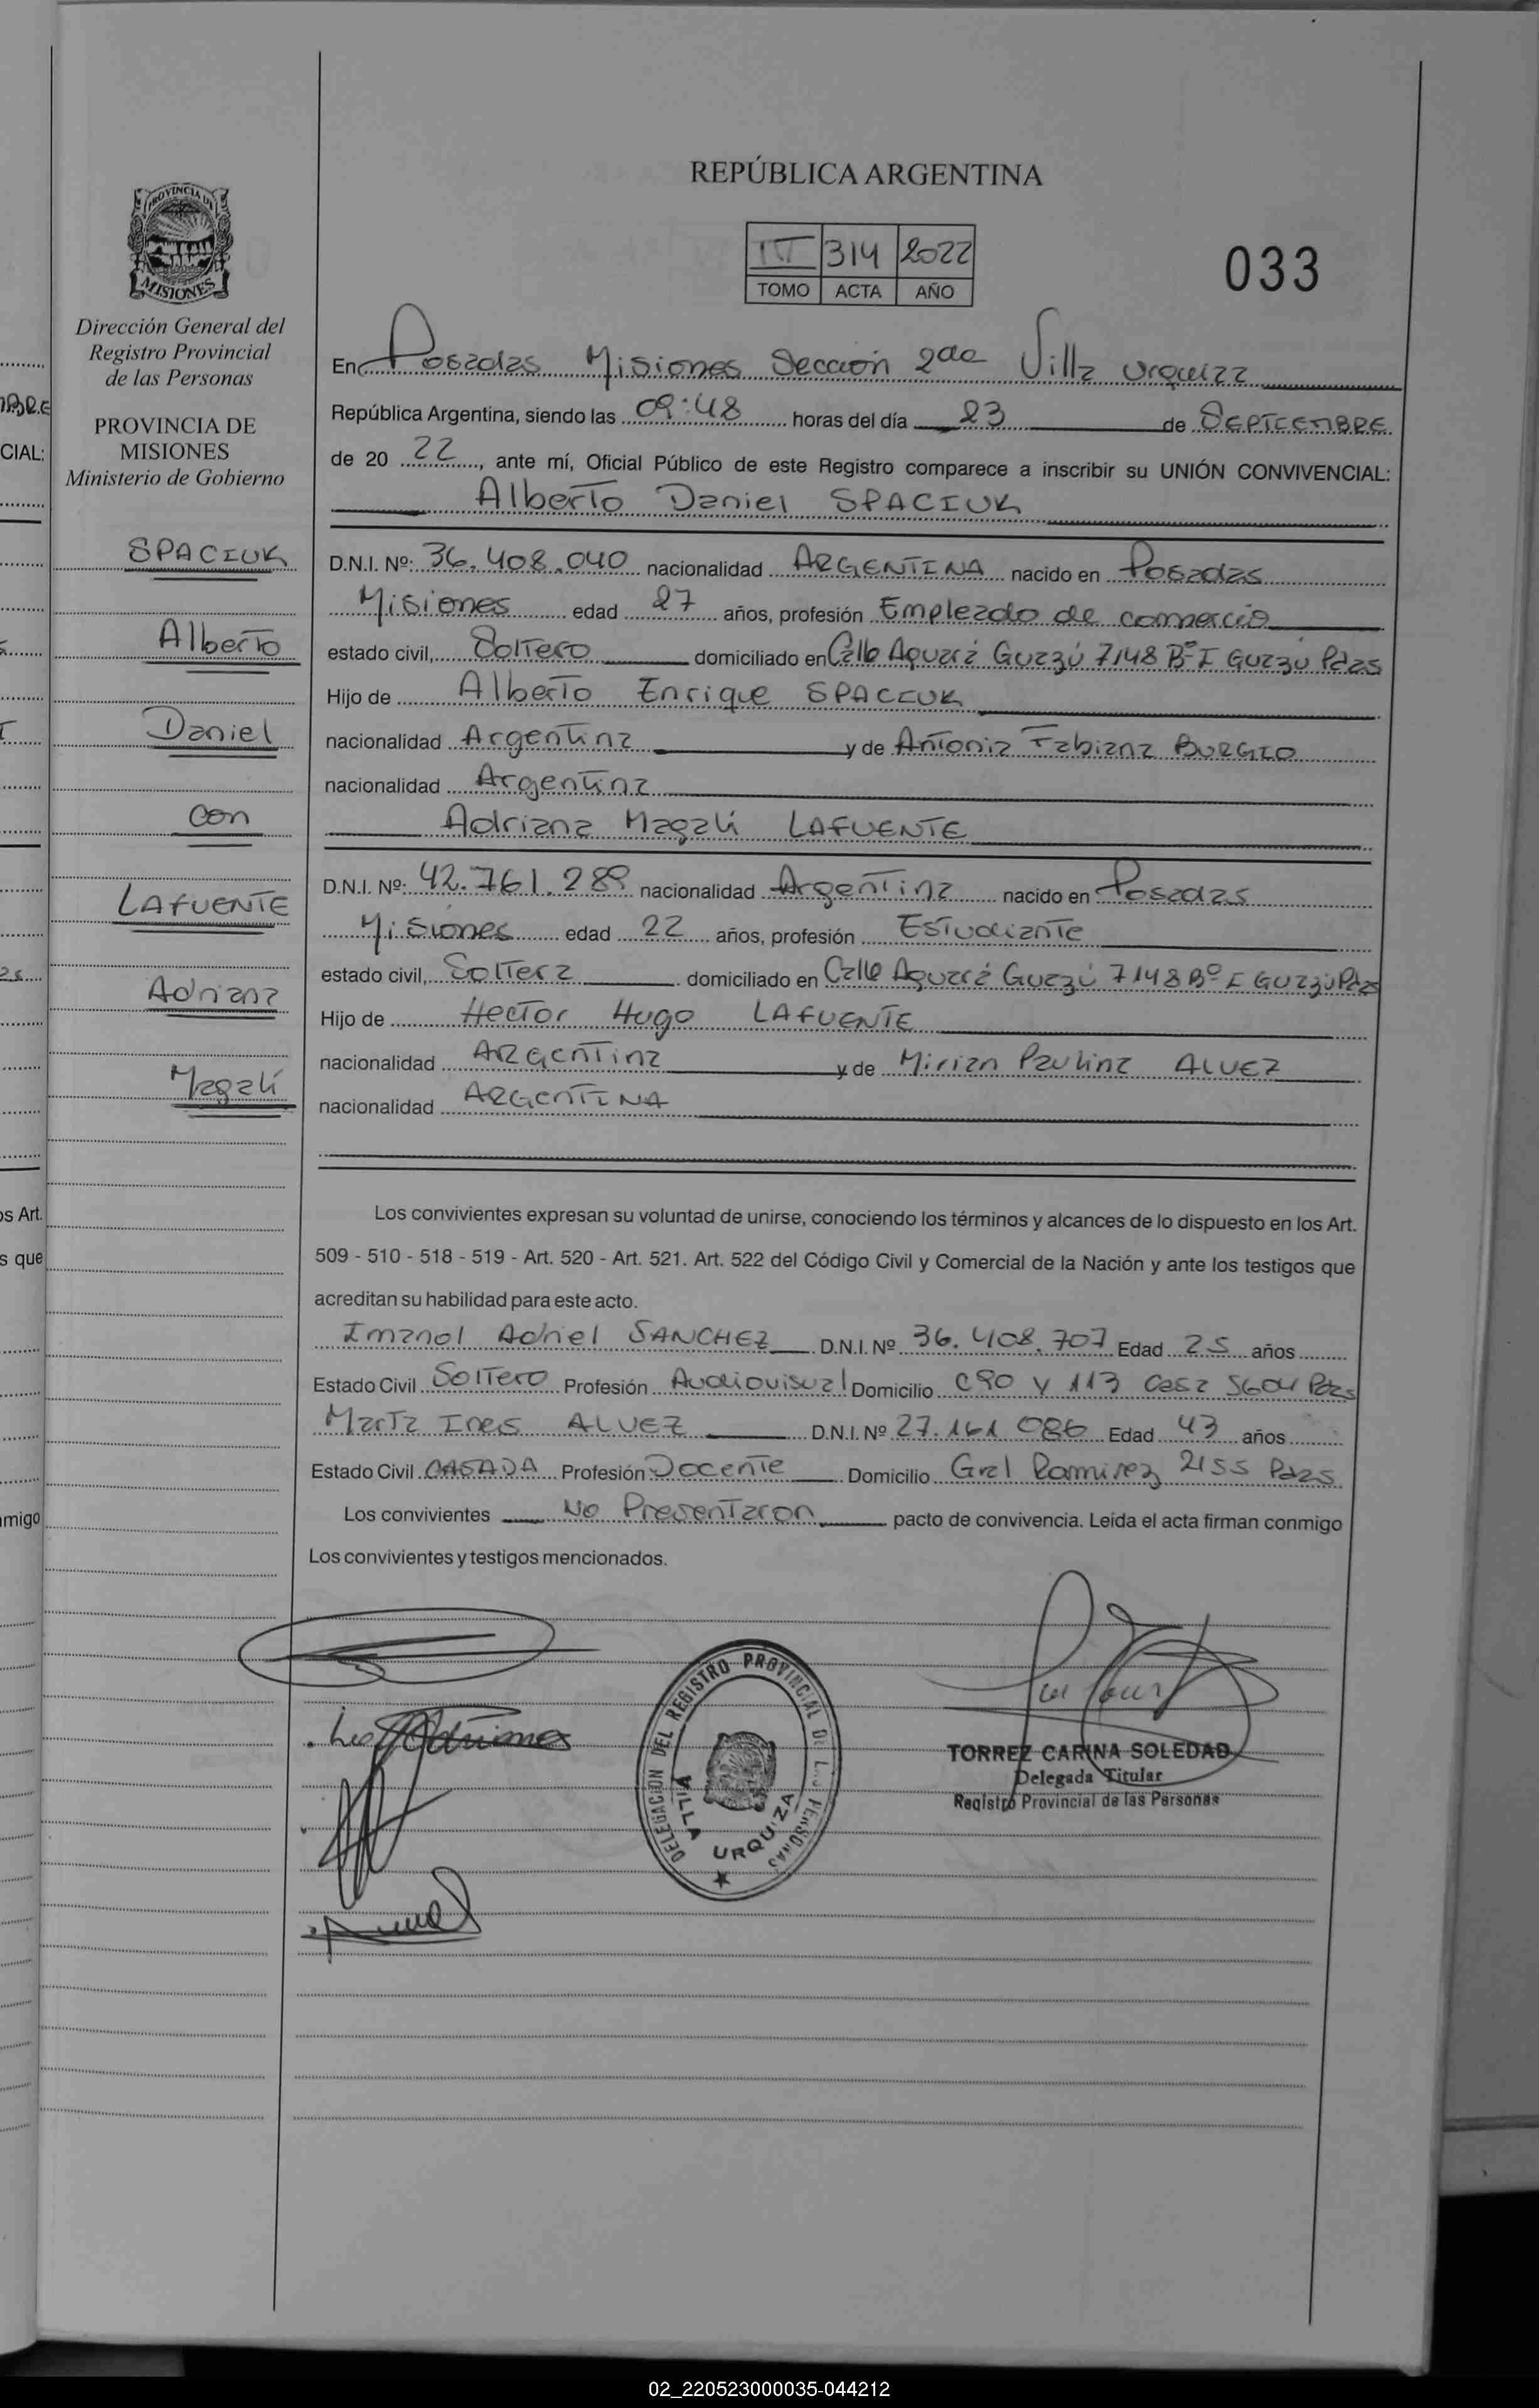 REPÚBLICA ARGENTINA
III 314 2022
TOMO ACTA AÑO
033
PROVINCIA DE
MISIONES
Dirección General del
Registro Provincial
de las Personas
PROVINCIA DE
MISIONES
Ministerio de Gobierno
SPACIUK
Alberto
Daniel
con
LAFUENTE
Adriana
Magalí
En Posadas Misiones Sección 2da Villa Urquiza
República Argentina, siendo las 09:48 horas del día 23 de SEPTIEMBRE
de 20 22, ante mí, Oficial Público de este Registro comparece a inscribir su UNIÓN CONVIVENCIAL:
Alberto Daniel SPACIUK
D.N.I. Nº: 36.408.040 nacionalidad ARGENTINA nacido en Posadas
Misiones edad 27 años, profesión Empleado de comercio
estado civil, Soltero domiciliado en Calle Aguará Guazú 7148 Bº I Guazú Pdas
Hijo de Alberto Enrique SPACIUK
nacionalidad Argentina y de Antonia Fabiana BURGIO
nacionalidad Argentina
Adriana Magalí LAFUENTE
D.N.I. Nº: 42.761.289 nacionalidad Argentina nacido en Posadas
Misiones edad 22 años, profesión Estudiante
estado civil, Soltera domiciliado en Calle Aguará Guazú 7148 Bº I Guazú Pdas
Hijo de Hector Hugo LAFUENTE
nacionalidad ARGentina y de Mirian Paulina ALVEZ
nacionalidad ARGenTINA
Los convivientes expresan su voluntad de unirse, conociendo los términos y alcances de lo dispuesto en los Art.
509 - 510 - 518 - 519 - Art. 520 - Art. 521. Art. 522 del Código Civil y Comercial de la Nación y ante los testigos que
acreditan su habilidad para este acto.
Imanol Adriel SANCHEZ D.N.I. Nº 36.408.707 Edad 25 años
Estado Civil Soltero Profesión Audiovisual Domicilio C90 y 113 Casa 5604 Pdas
Marta Ines ALVEZ D.N.I. Nº 27.161 086 Edad 43 años
Estado Civil CASADA Profesión Docente Domicilio Gral Ramirez 2155 Pdas
Los convivientes No Presentaron pacto de convivencia. Leída el acta firman conmigo
Los convivientes y testigos mencionados.
DELEGACION DEL REGISTRO PROVINCIAL DE LAS PERSONAS
VILLA URQUIZA
TORREZ CARINA SOLEDAD
Delegada Titular
Registro Provincial de las Personas
02_220523000035-044212